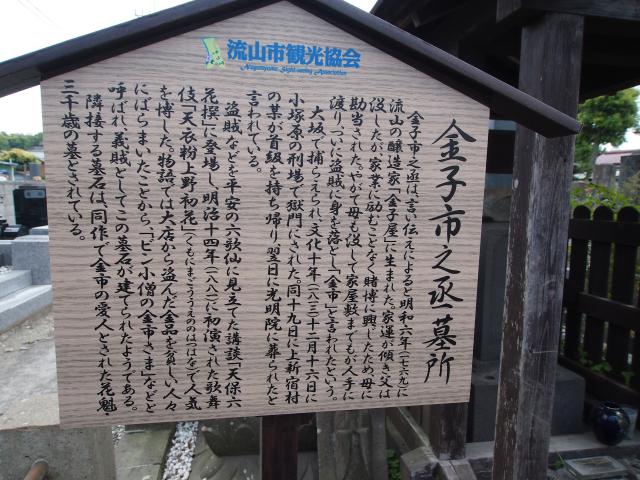 流山市観光協会
Nagareyama Sight-seeing Association
金子市之丞墓所
金子市之丞は、言い伝えによると明和六年(一七六九)に
流山の醸造家「金子屋」に生まれた。家運が傾き父は
没したが家業に励むことなく賭博に興じたため、母に
勘当された。やがて母も没して家屋敷までもが人手に
渡り、ついに盗賊に身を落とし「金市」と言われたという。
大坂で捕らえられ、文化十年(一八一三)十二月十六日に
小塚原の刑場で獄門にされた。同十九日に上新宿村
の某が首級を持ち帰り翌日に光明院に葬られたと
言われている。
盗賊などを平安の六歌仙に見立てた講談「天保六
花撰」に登場し、明治十四年(一八八一)に初演された歌舞
伎「天衣粉上野初花」(くもにまごううえののはつはな)で人気
を博した。物語では大店から盗んだ金品を貧しい人々
にばらまいたことから、「ビン小僧の金市さま」などと
呼ばれ、義賊としてこの墓石が建てられたようである。
隣接する墓石は、同作で金市の愛人とされた花魁・
三千歳の墓とされている。